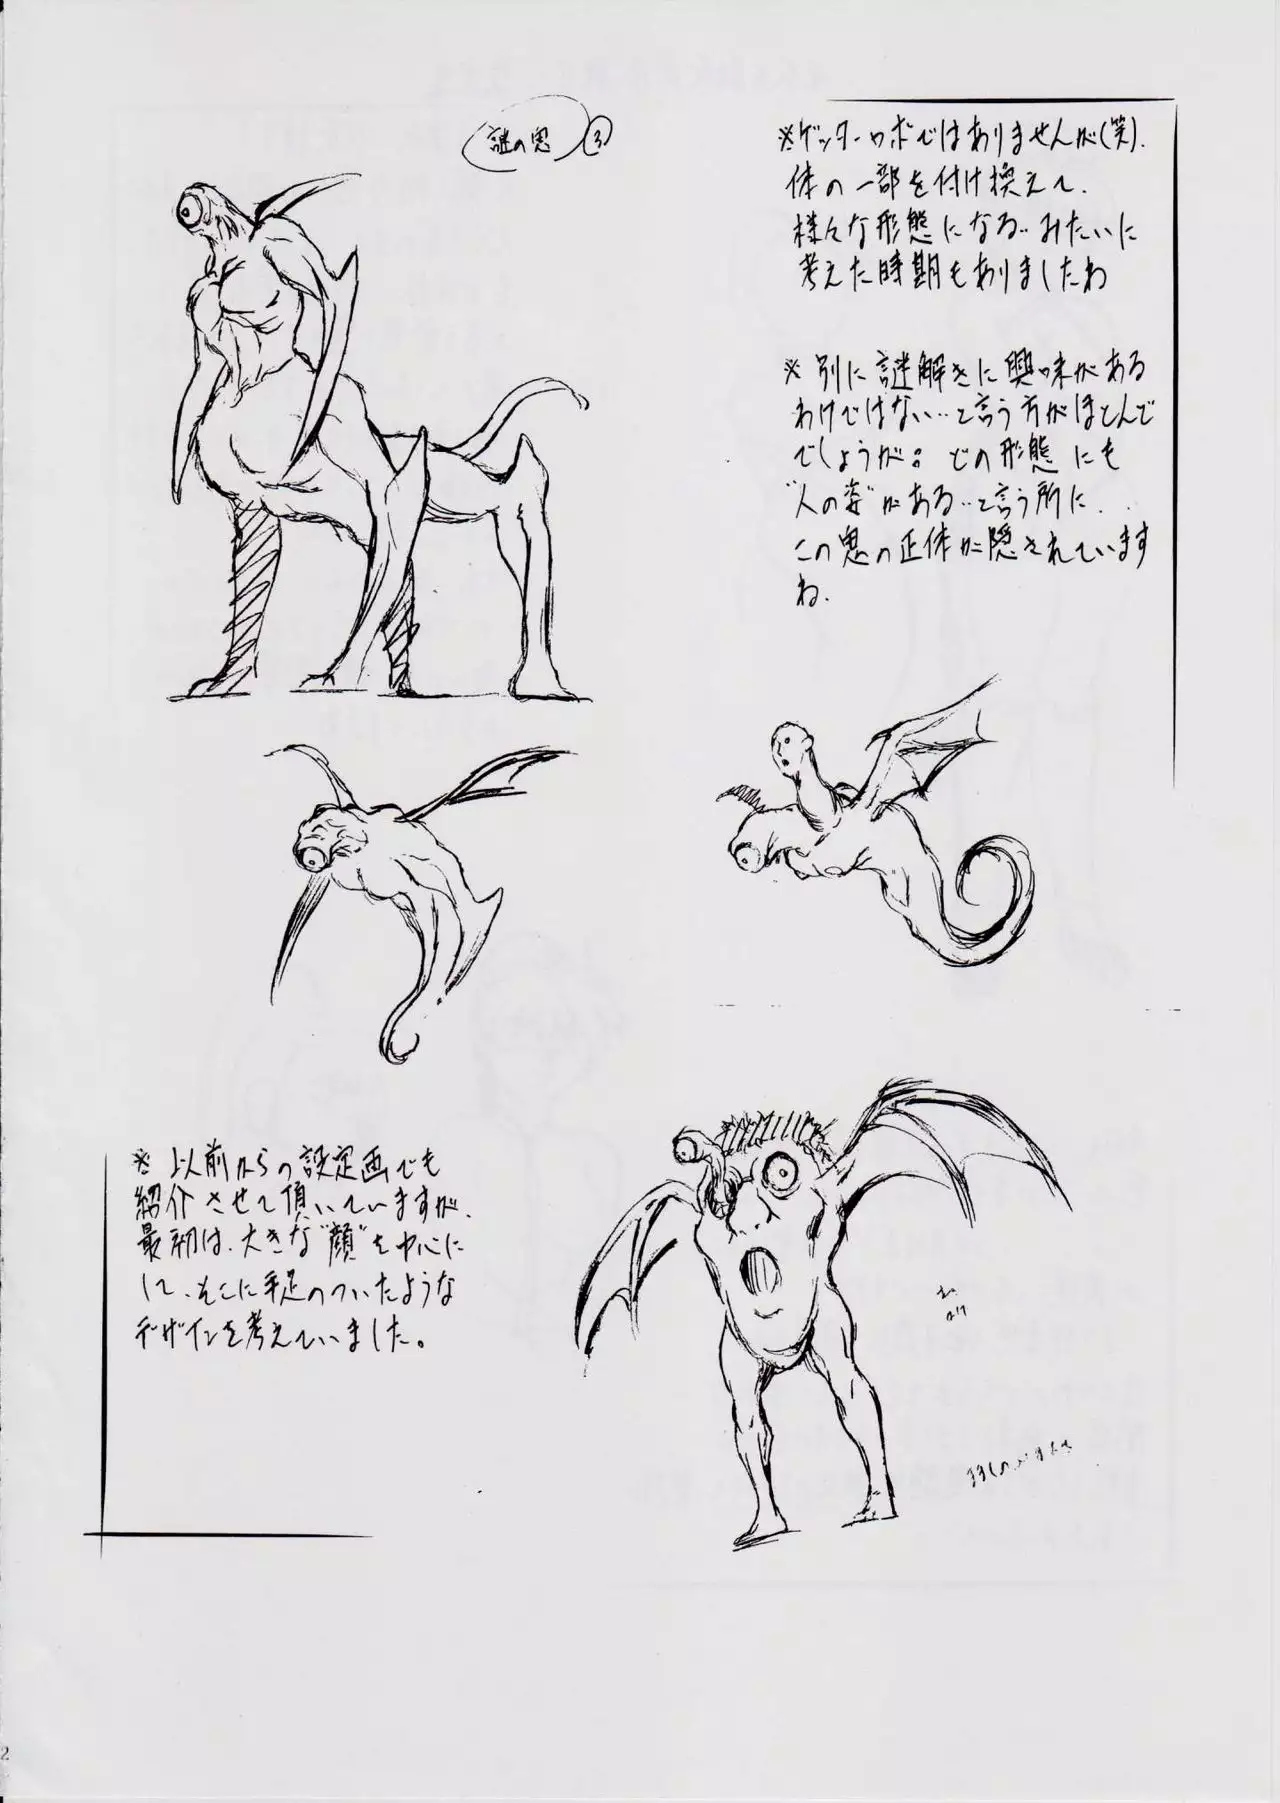 謎の鬼 ③
※ゲッターロボではありませんが(笑).
体の一部を付け換えて、
様々な形態になる‥みたいに
考えた時期もありましたね
※別に謎解きに興味がある
わけではない‥と言う方がほとんど
でしょうが。どの形態にも
"人の姿"がある‥と言う所に‥
この鬼の正体が隠されています
ね.
※以前からの設定画でも
紹介させて頂いていますが、
最初は、大きな"顔"を中心に
して、そこに手足のついたような
デザインを考えていました。
2